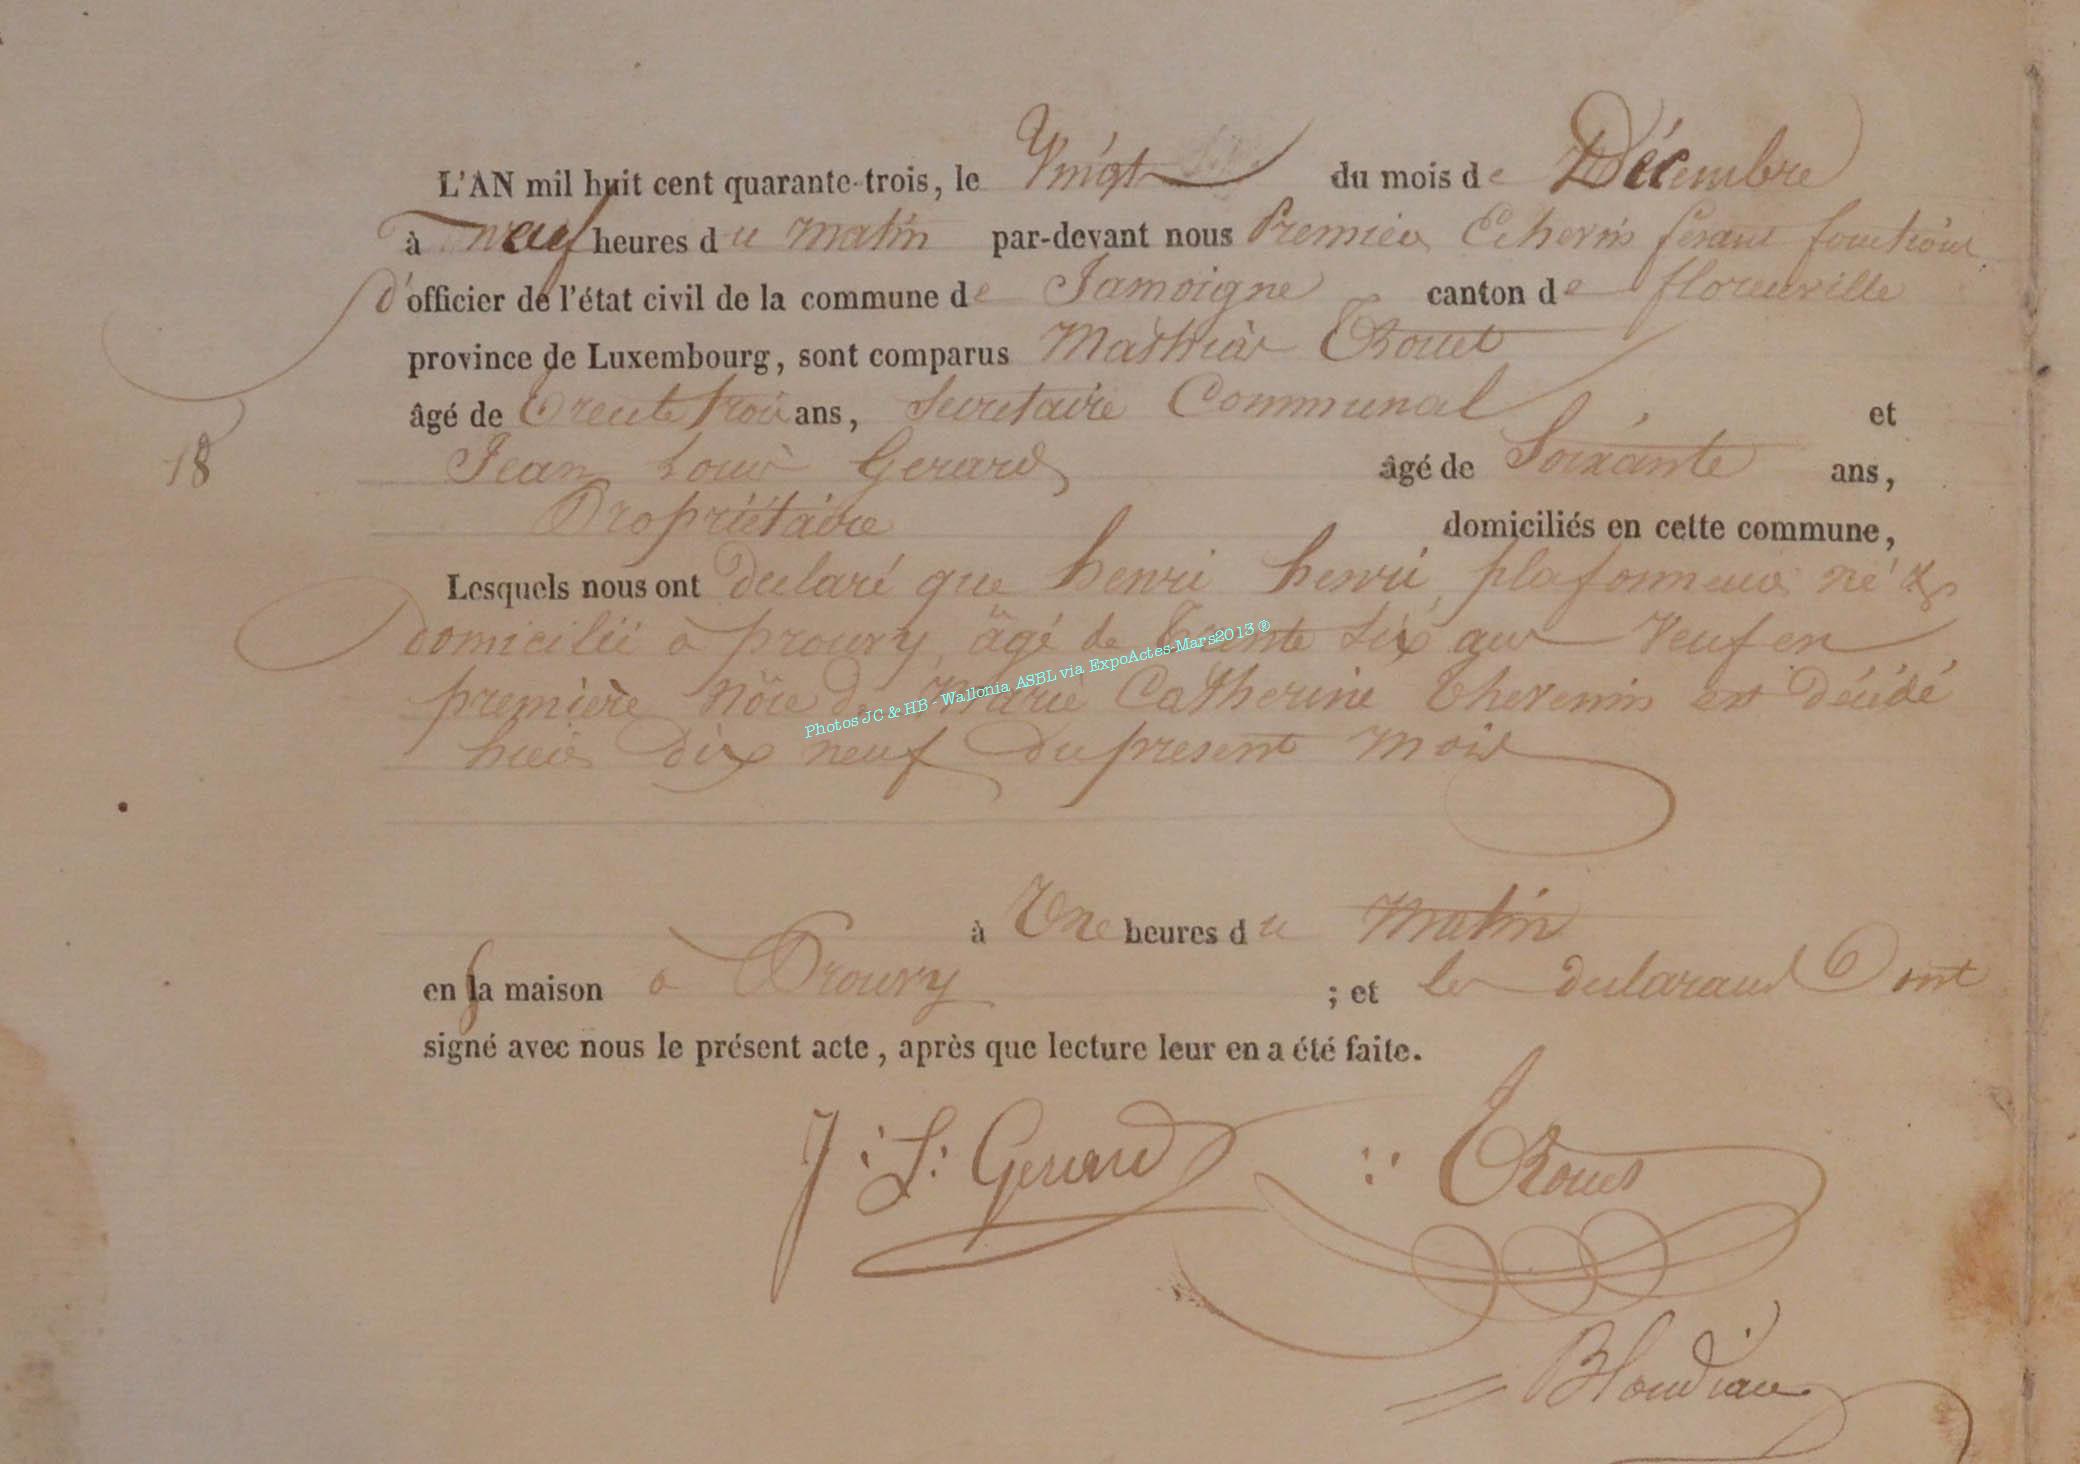 L'AN mil huit cent quarante-trois, le Vingt du mois de Décembre
à neuf heures du matin par-devant nous Premier Echevin fesant fonctions
d'officier de l'état civil de la commune de Jamoigne canton de florenville
province de Luxembourg, sont comparus Mathias Rouet
âgé de trente trois ans, Secretaire Communal et
18 Jean Louis Gerard âgé de Soixante ans,
Propriétaire domiciliés en cette commune,
Lesquels nous ont declaré que henri henri, plafonneur né &
domicilié à prouvy, âgé de Trente six ans Veuf en
première Nôce de Marie Catherine thevenin est décédé
hier dix neuf du present mois
à Une heures du Matin
en sa maison à Prouvy ; et les declarans ont
signé avec nous le présent acte, après que lecture leur en a été faite.
J: L: Gerard Rouet
Blondiau
Photos JC & HB - Wallonia ASBL via ExpoActes-Mars2013 ®